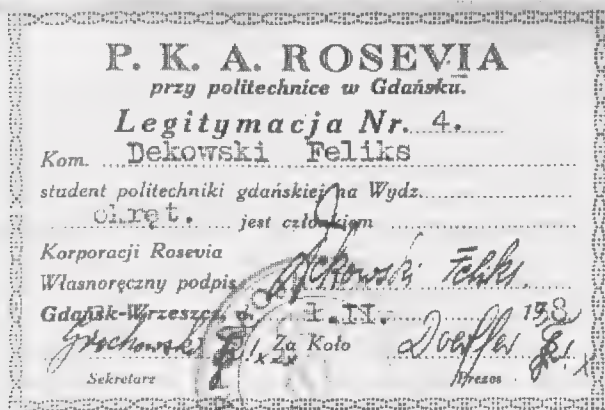 P. K. A. ROSEVIA
przy politechnice w Gdańsku.
Legitymacja Nr. 4.
Kom. Dekowski Feliks
student politechniki gdańskiej na Wydz.
okręt. jest członkiem
Korporacji Rosevia
Własnoręczny podpis Dekowski Feliks
Gdańsk-Wrzeszcz, d. 1.II. 1938
Grochowski Za Koło Doerffer
Sekretarz Prezes